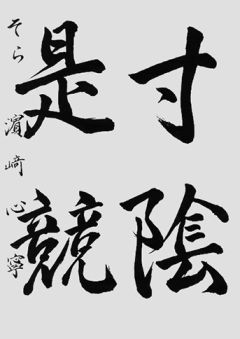 寸陰
是競
そら 濵﨑心寧